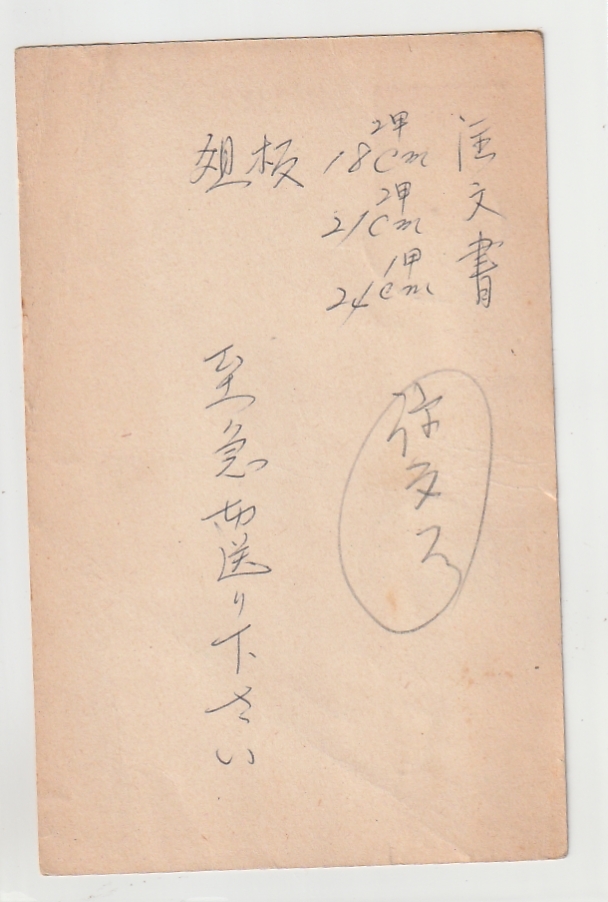 注文書
俎板
2甲
18cm
2甲
21cm
1甲
24cm
至急お送り下さい